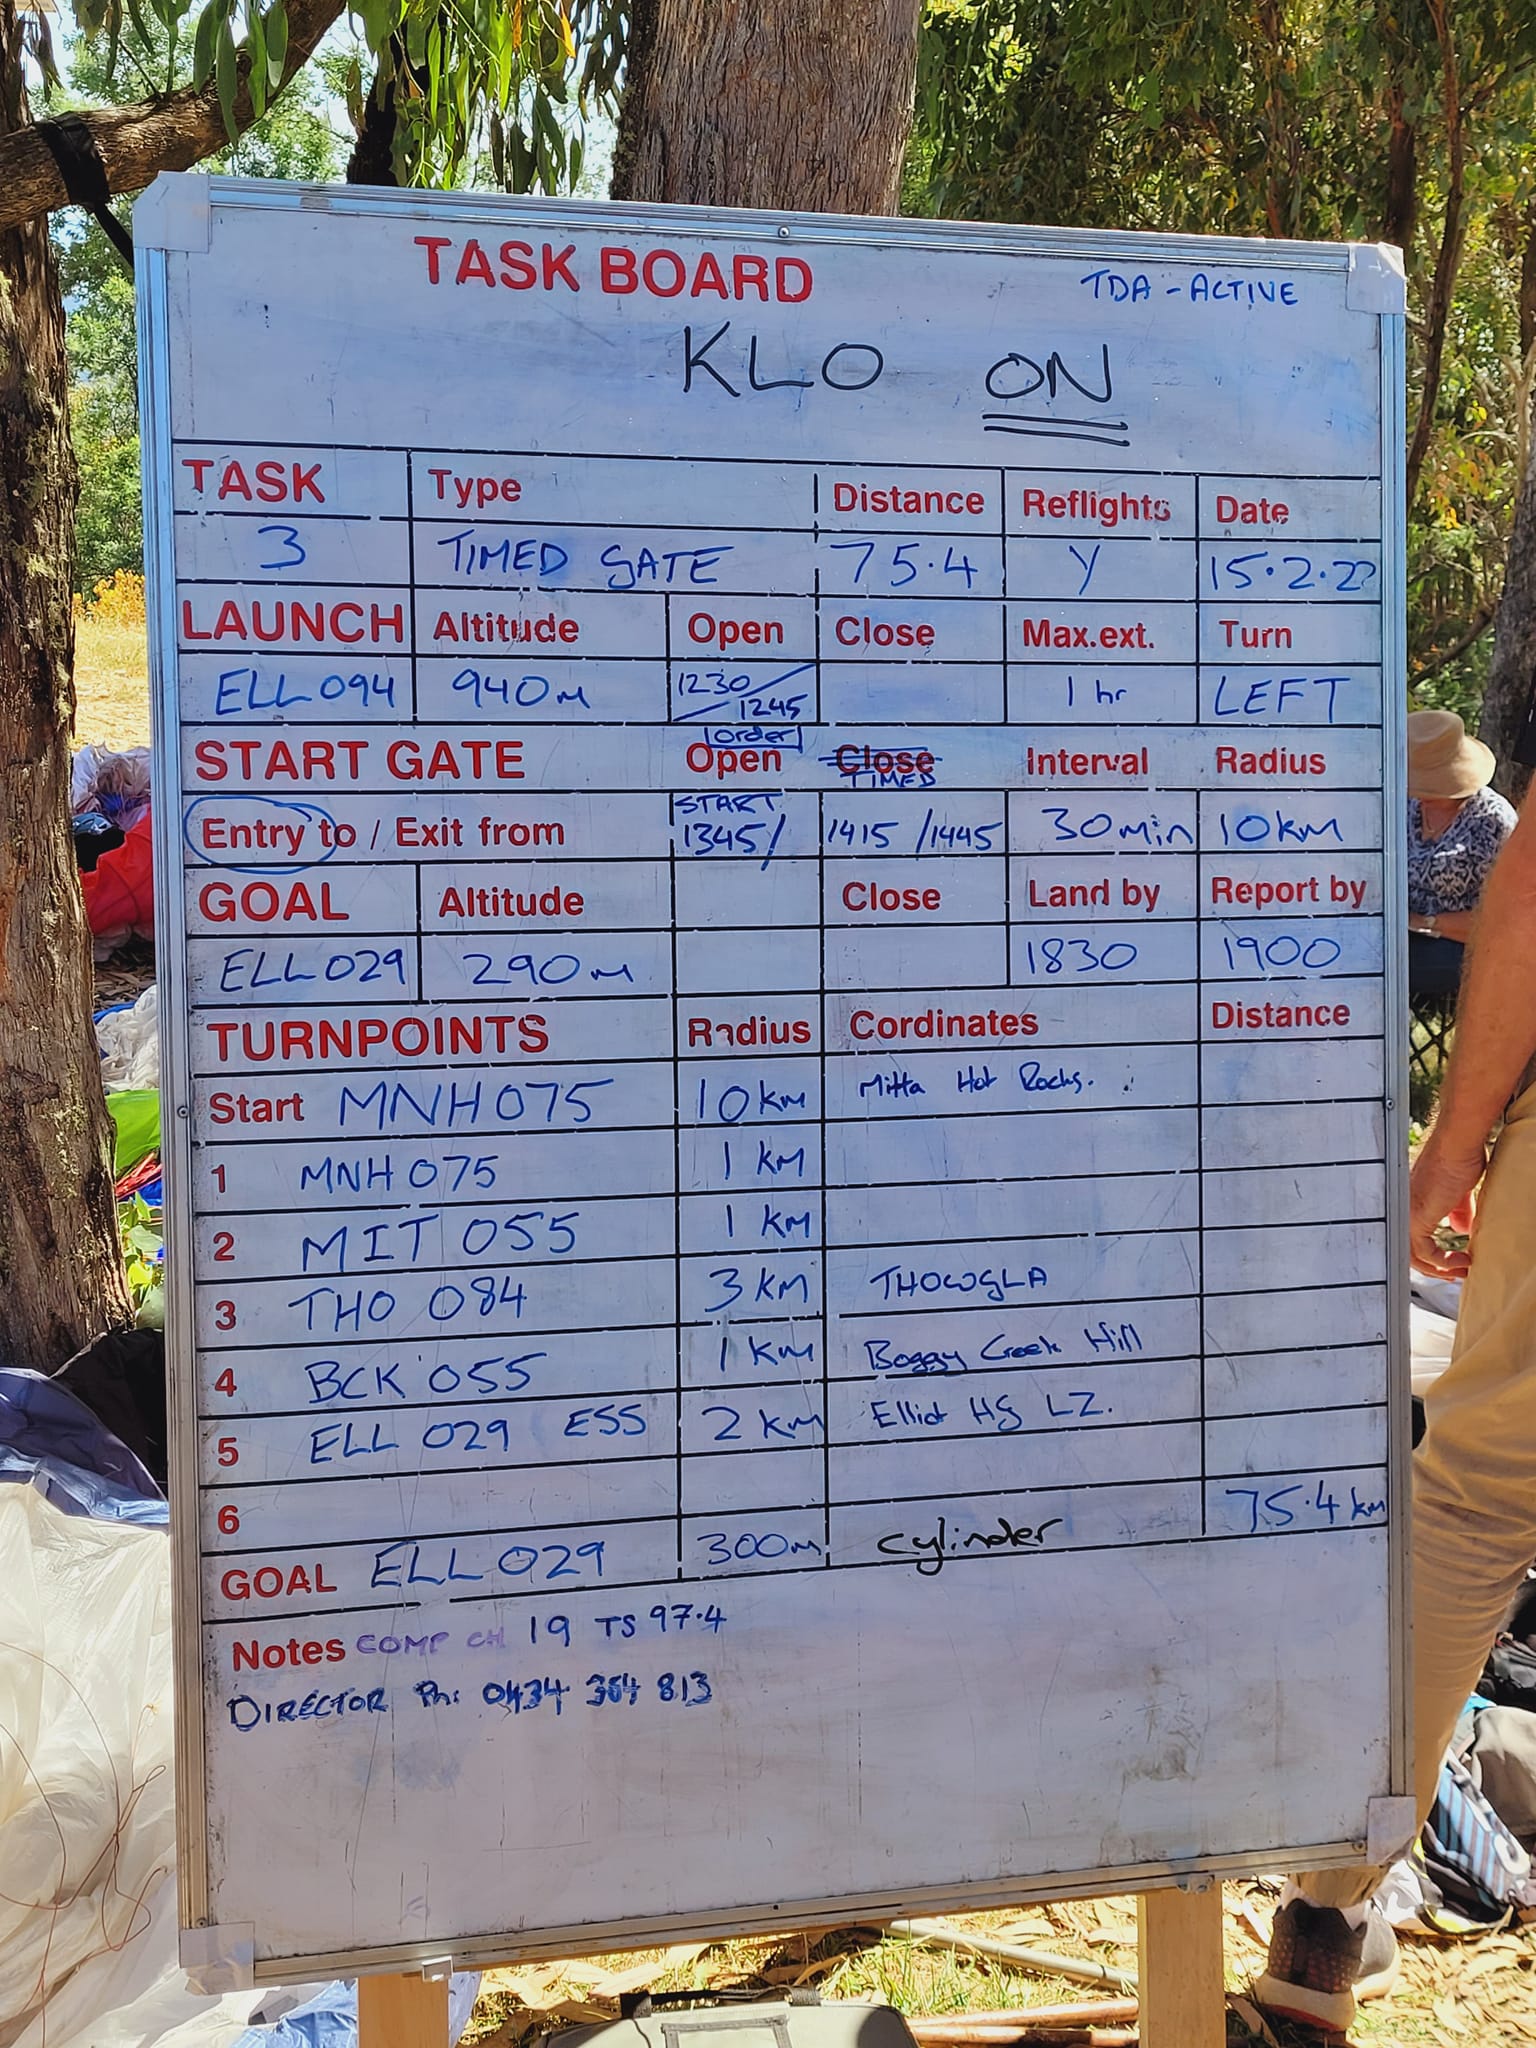 TASK BOARD
TDA - ACTIVE
KLO ON
TASK Type Distance Reflights Date
3 TIMED GATE 75.4 Y 15.2.22
LAUNCH Altitude Open Close Max.ext. Turn
ELL094 940m 1230/1245 1 hr LEFT
(order)
START GATE Open Close Interval Radius
TIMED
START
Entry to / Exit from 1345/ 1415 /1445 30min 10km
GOAL Altitude Close Land by Report by
ELL029 290m 1830 1900
TURNPOINTS Radius Cordinates Distance
Start MNH075 10km Mitta Hot Rocks.
1 MNH075 1 km
2 MIT 055 1 km
3 THO 084 3 km THOWGLA
4 BCK 055 1 km Boggy Creek Hill
5 ELL 029 ESS 2 km Elliot HG LZ.
6 75.4 km
GOAL ELL029 300m cylinder
Notes COMP CH 19 TS 97.4
DIRECTOR Ph: 0434 364 813